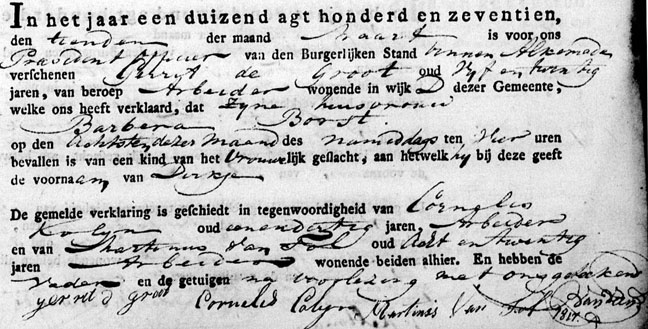 In het jaar een duizend agt honderd en zeventien,
den tienden der maand Maart is voor ons
President Officier van den Burgerlijken Stand binnen Alkemade
verschenen Gerrit de Groot oud Vyf en twintig
jaren, van beroep Arbeider wonende in wijk D dezer Gemeente,
welke ons heeft verklaard, dat Zyne huisvrouw
Barbera Borst
op den Achtsten dezer Maand des nameddags ten Vier uren
bevallen is van een kind van het Vrouwelijk geslacht, aan hetwelk hy bij deze geeft
de voornaam, van Dirkje
De gemelde verklaring is geschiedt in tegenwoordigheid van Cornelis
Kolyn oud eenendertig jaren, Arbeider
en van Martinus Van Tol oud Acht en twintig
jaren Arbeider wonende beiden alhier. En hebben de
Vader en de getuigen na voorlezing met ons getekend
gerret d groot Cornelis Colyn Martinis Van Tol
1817.